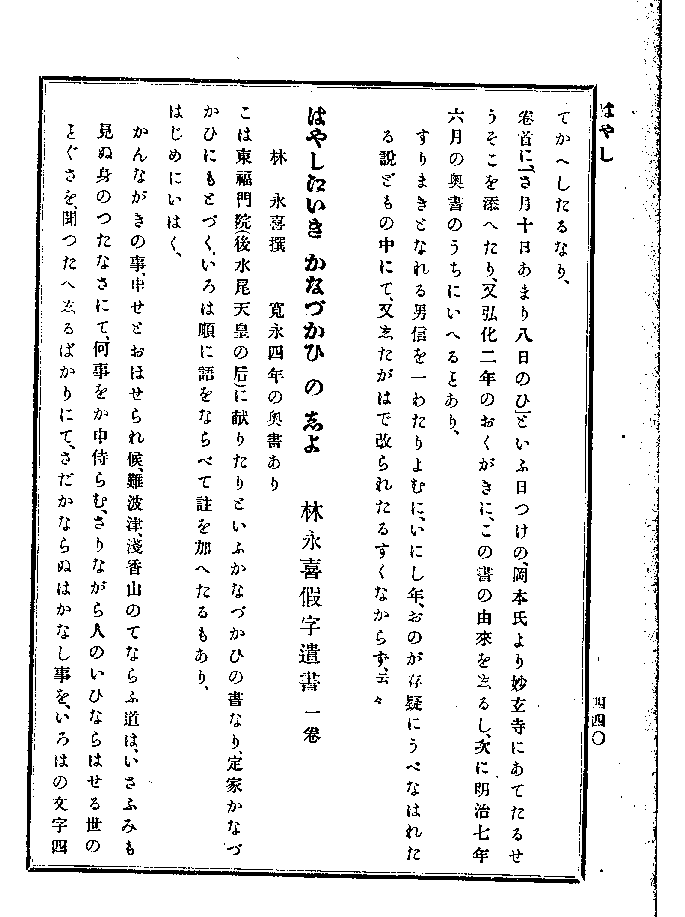 はやし
四四〇
てかへしたるなり、
卷首に、「さ月十日あまり八日のひ」といふ日つけの、岡本氏より妙玄寺にあてたるせ
うそこを添へたり、又弘化二年のおくがきに、この書の由來を志るし、次に明治七年
六月の奥書のうちにいへるとあり、
すりまきとなれる男信を一わたりよむに、いにし年、おのが存疑にうべなはれた
る説どもの中にて、又志たがはで改られたるすくなからず、云々
はやしえいき かなづかひ の 志よ 林永喜假字遣書 一卷
林 永喜撰 寛永四年の奥書あり
こは東福門院(後水尾天皇の后)に献りたりといふかなづかひの書なり、定家かなづ
かひにもとづく、いろは順に語をならべて註を加へたるもあり、
はじめにいはく、
かんながきの事、申せとおほせられ候、難波津、淺香山のてならふ道は、いさふみも
見ぬ身のつたなさにて、何事をか申侍らむ、さりながら人のいひならはせる世の
とぐさを、聞つたへ志るばかりにて、さだかならぬはかなし事を、いろはの文字四